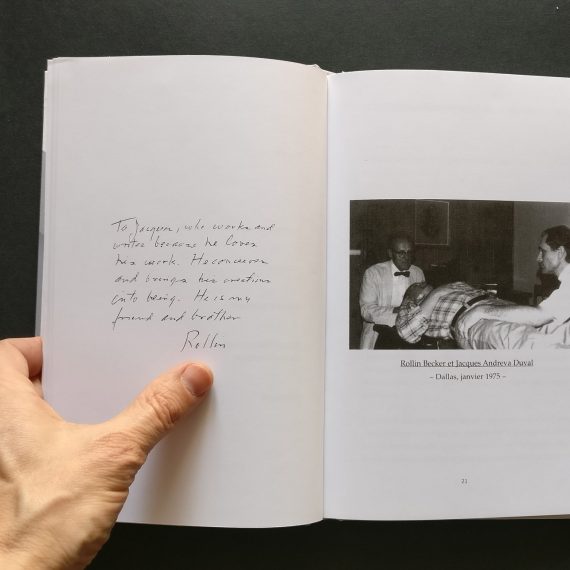 To Jacques, who works and
writes because he loves
his work. He conceives
and brings his creations
into being. He is my
friend and brother
Rollin
Rollin Becker et Jacques Andreva Duval
– Dallas, janvier 1975 –
21